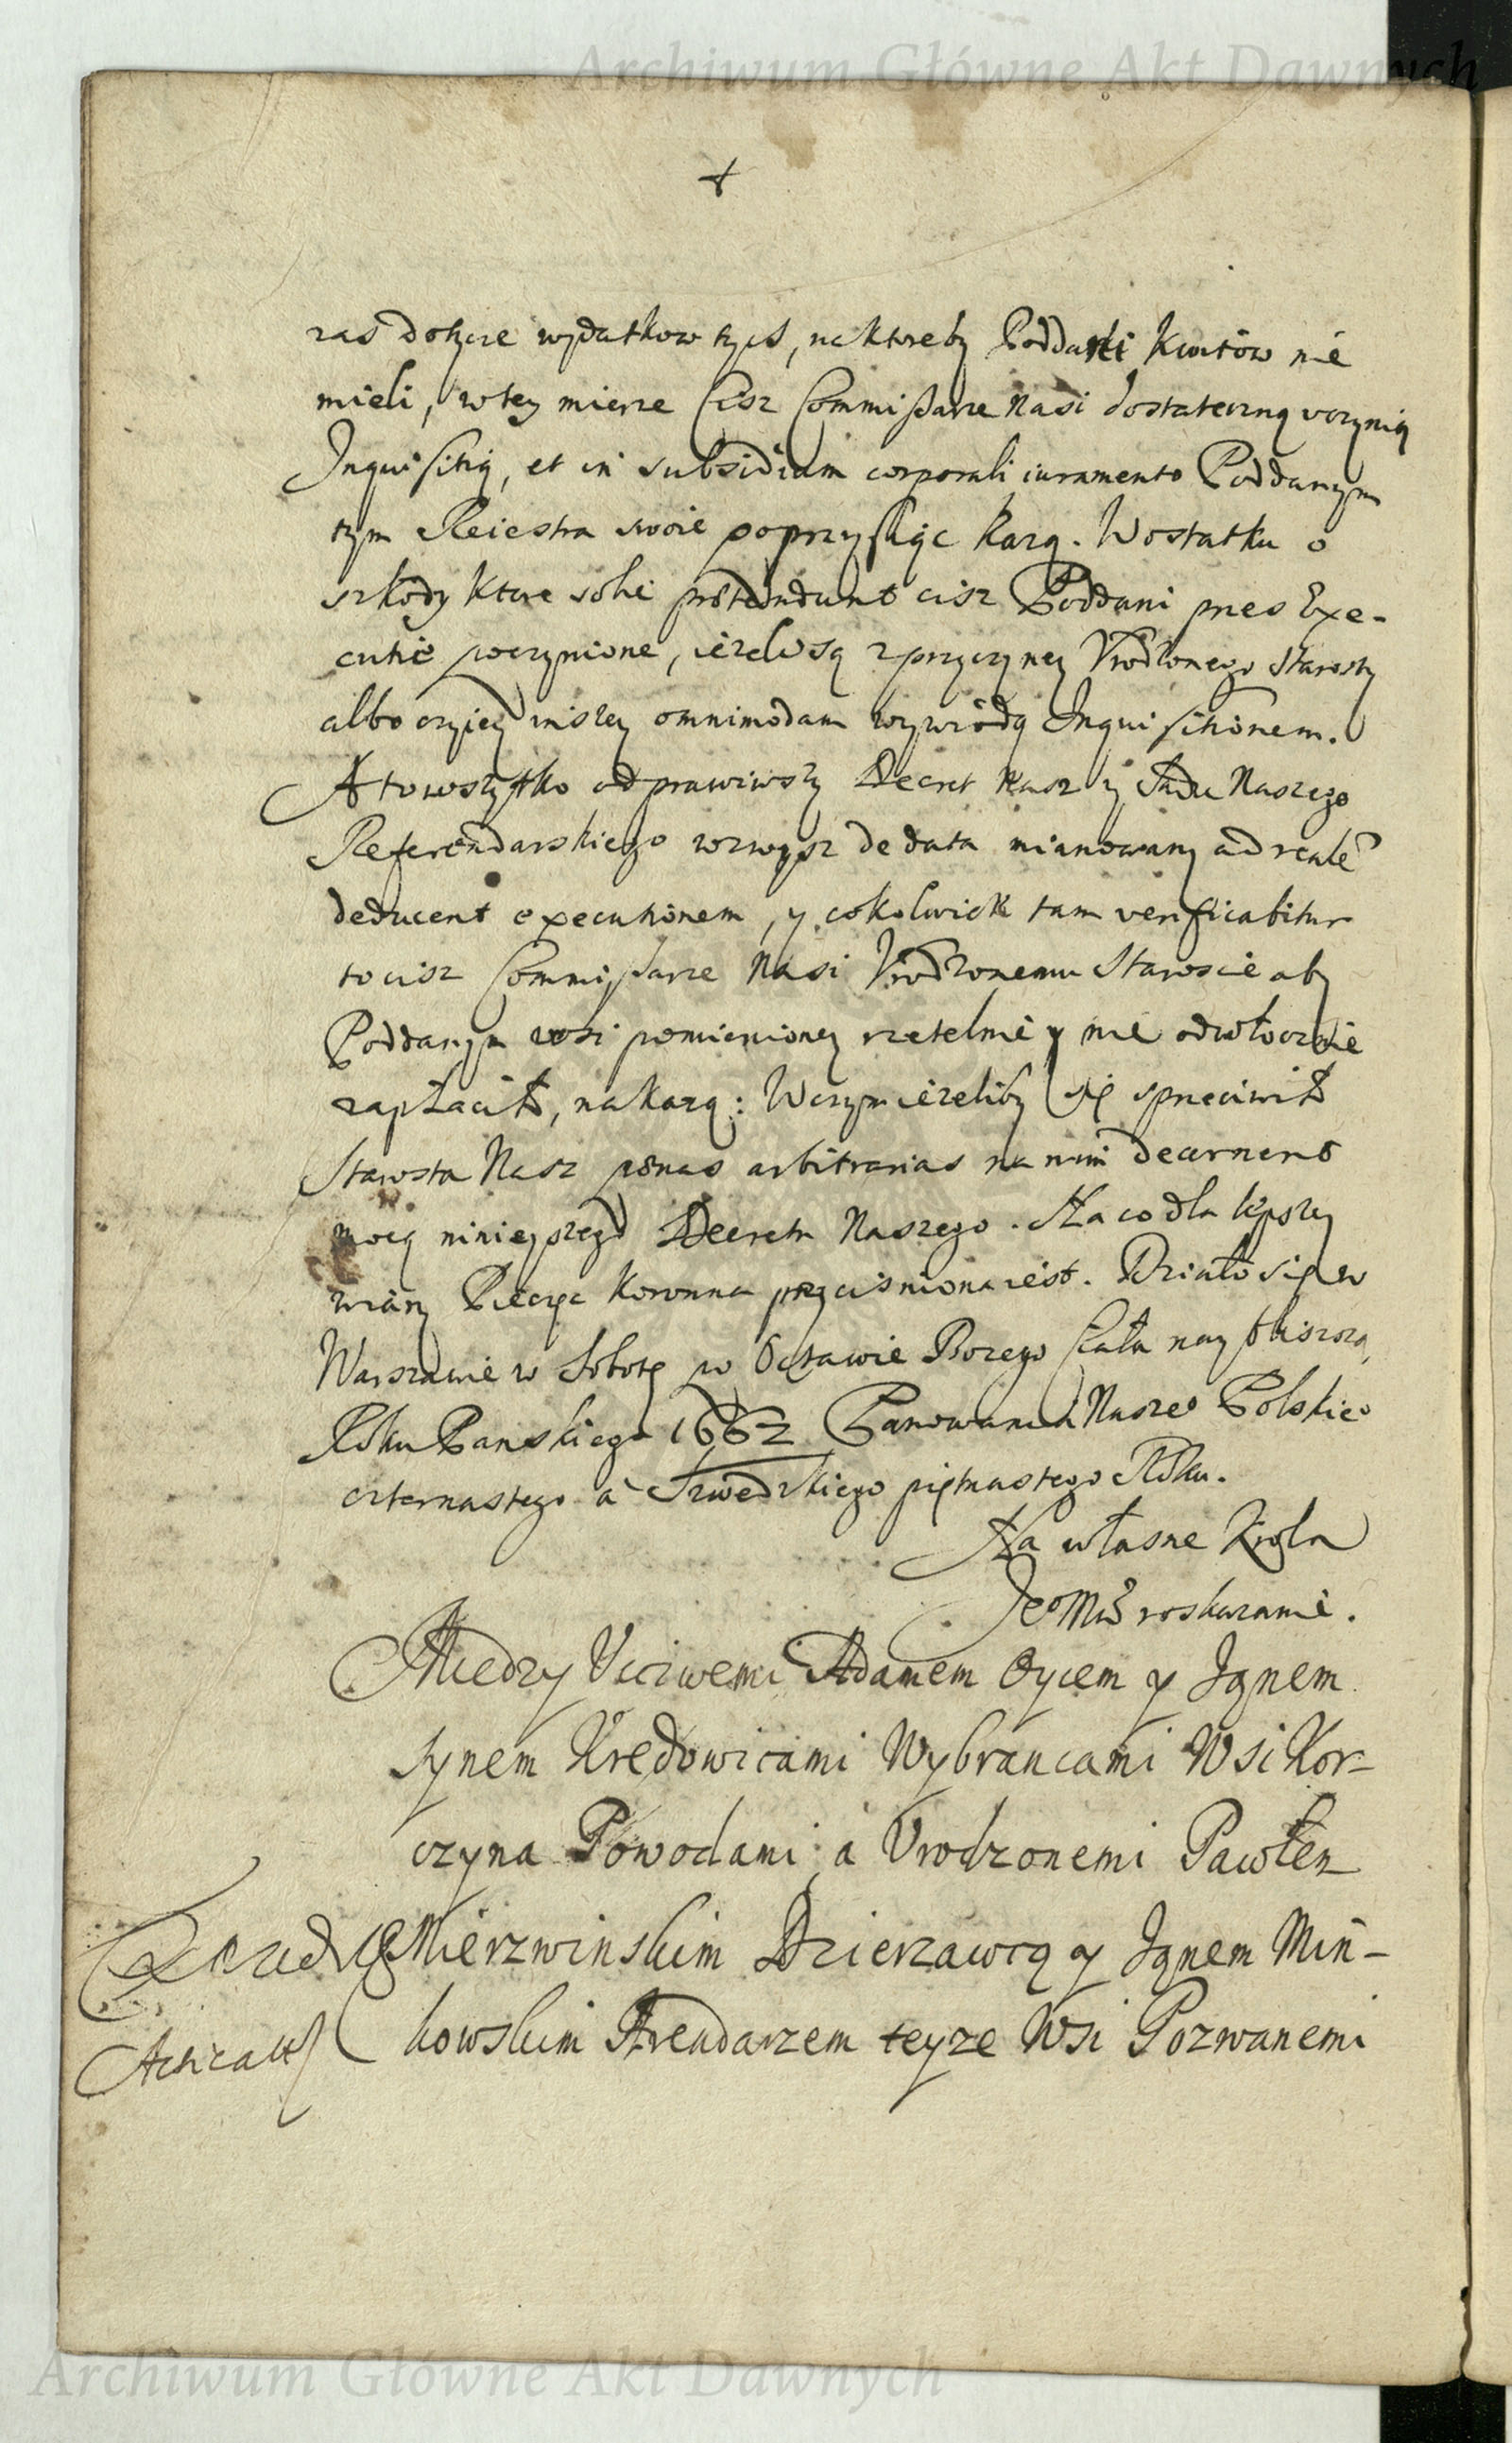 Archiwum Główne Akt Dawnych
zas dotycze wydatkow tych, na ktoreby Poddani kwitów nie
mieli, wtey mierze cisz Commissarze Nasi dostateczną uczynią
Inquisitią, et in subsidium corporali iuramento Poddanym
tym Reiestra swoie poprzysiąc każą. Wostatku o
szkody ktore sobie prætendunt cisz Poddani przes Exe-
cutie poczynione, ieżeli są zprzyczyney Vrodzonego Starosty
albo czyiey inszey omnimodam wywiodą Inquisitionem.
A towszytko odprawiwszy Decret Nasz y Sądu Naszego
Referendarskiego wzwysz de data mianowany ad realē
deducent executionem, y cokolwiek tam verificabitur
to cisz Commissarze Nasi Vrodzonemu Staroscie aby
Poddanym wsi pomienionej rzetelnie y nie odwłocznie
zapłacił, nakażą: Wczym ieżeliby się sprzeciwił
Starosta Nasz pœnas arbitrarias na nim decernent
mocą ninieyszego Decretu Naszego. Na co dla lepszey
wiary Pieczęc Koronna przyciśniona iest. Działo się w
Warszawie w Sobotę po Octawie Bozego Ciała nay bliszszą,
Roku Panskiego 1662 Panowania Naszeo Polskieo
czternastego a Szwedzkiego piętnastego Roku.
Na własne Krola
Jeo Mci roskazanie.
Miedzy Vcciwemi Adamem Oycem y Janem
synem Kredowicami Wybrancami Wsi Kor-
czyna Powodami a Vrodzonemi Pawłem
Mierzwinskim Dzierzawcą y Janem Min-
kowskim Arendarzem teyze Wsi Pozwanemi
Archiwum Główne Akt Dawnych